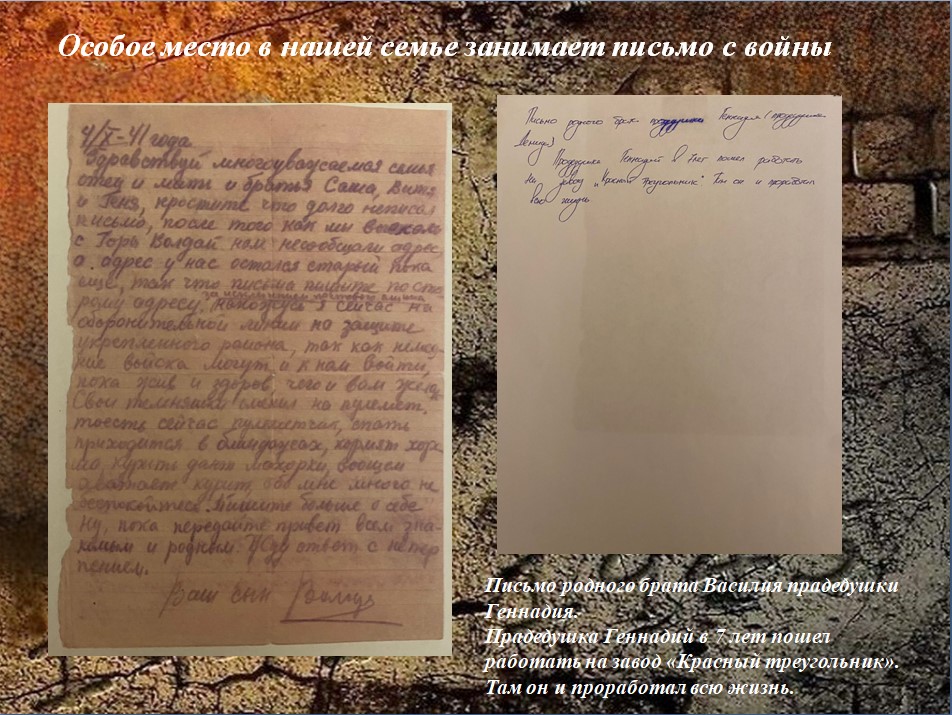 Особое место в нашей семье занимает письмо с войны
4/X-41 года
Здравствуй многоуважаемая семья
отец и мать и братья Саша, Витя
и Гена, простите что долго не писал
письмо, после того как мы выехали
с Горы Валдай нам не сообщали адрес,
а адрес у нас остался старый пока
еще, так что письма пишите по ста
рому адресу, нахожусь я сейчас на
оборонительной линии на защите
укрепленного района, так как немец
кие войска могут и к нам войти,
пока жив и здоров, чего и вам желаю
Свои сменил на пулемет,
тоесть сейчас пулеметчик, спать
приходится в блиндажах, кормят хоро
шо, курить дают махорки, вообщем
хватает курить, обо мне много не
беспокойтесь. Пишите больше о себе
Ну, пока передайте привет всем зна-
комым и родным. Жду ответ с нетер
пением.
Ваш сын
Письмо родного брата Геннадия (прадедушки
Прадедушка Геннадий в 7 лет пошел работать
на завод „Красный треугольник“. Там он и проработал
всю жизнь
Письмо родного брата Василия прадедушки
Геннадия.
Прадедушка Геннадий в 7 лет пошел
работать на завод «Красный треугольник».
Там он и проработал всю жизнь.